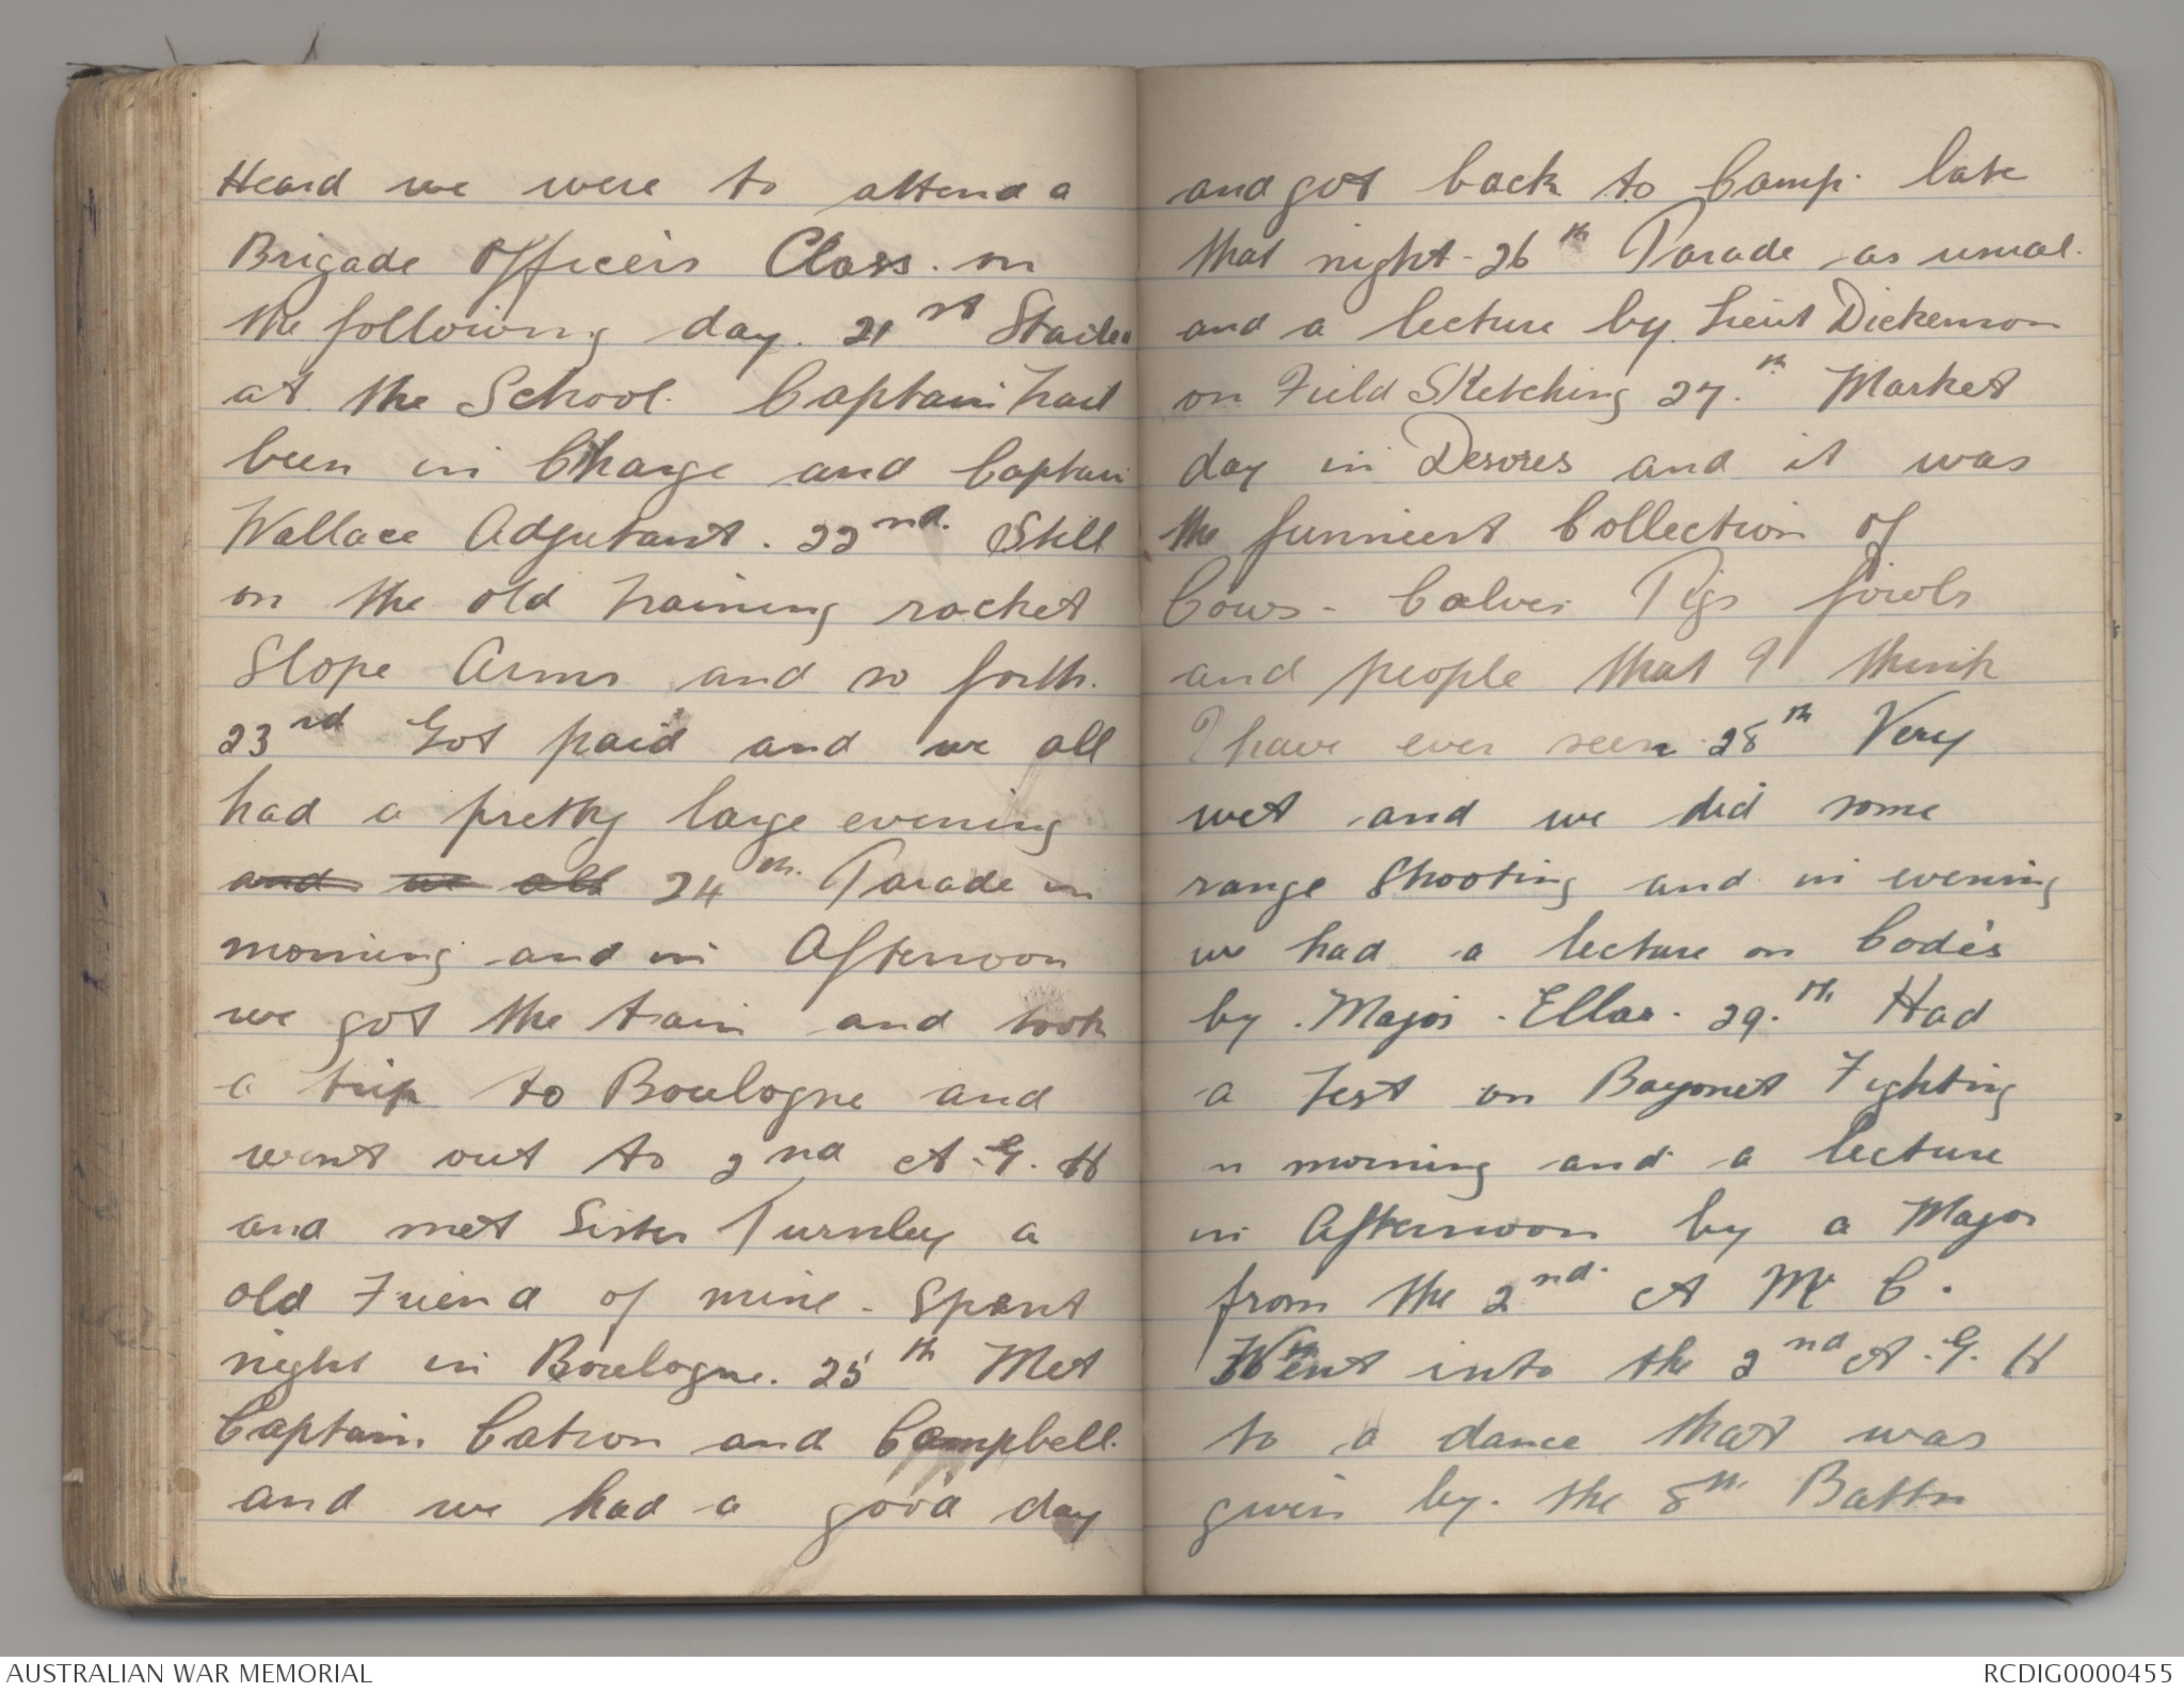 Heard we were to attend a
Brigade Officers Class. on
the following day. 21st Started
at the School. Captain
been in Charge and Captain
Wallace Adjutant. 22nd. Still
on the old training racket
Slope Arms and so forth.
23rd Got paid and we all
had a pretty large evening
and we all 24th. Parade in
morning and in Afternoon
we got the train and took
a trip to Boulogne and
went out to 2nd A.G.H
and met Sister Turnley a
old Friend of mine. Spent
night in Boulogne. 25th Met
Captain. Catron and Campbell.
and we had a good day
and got back to Camp. late
that night - 26th Parade as usual.
and a lecture by Lieut Dickenson
on Field Sketching 27.th Market
day in Desvres and it was
the funniest Collection of
Cows - Calves Pigs fowls
and people that I think
I have ever seen 28th Very
wet and we did some
range Shooting and in evening
we had a lecture on Codes
by. Major. Ellas. 29.th Had
a Test on Bayonet Fighting
n morning and a lecture
in Afternoon by a Major
from the 2nd. A M C.
Went into the 2nd A.G.H
to a dance that was
given by. the 8th. Battn
AUSTRALIAN WAR MEMORIAL
RCDIG0000455